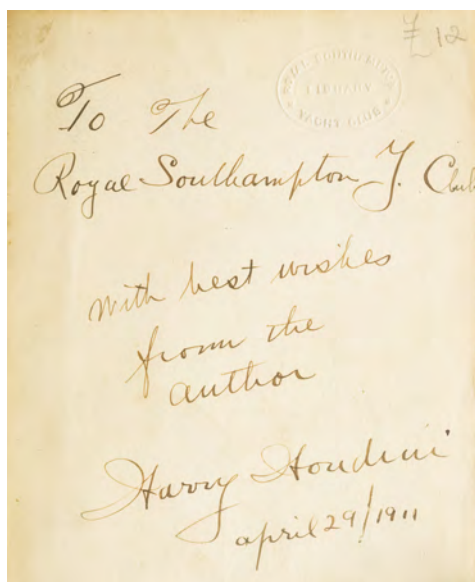 £12
ROYAL SOUTHAMPTON
LIBRARY
YACHT CLUB
To The
Royal Southampton Y. Club
with best wishes
from the
author
Harry Houdini
april 29/1911